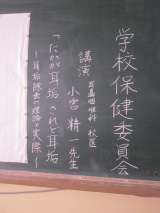 学校保健委員会
講演
耳鼻咽喉科 校医
小宮 精一 先生
「たかが耳垢 されど耳垢
―耳垢除去の理論と実際―